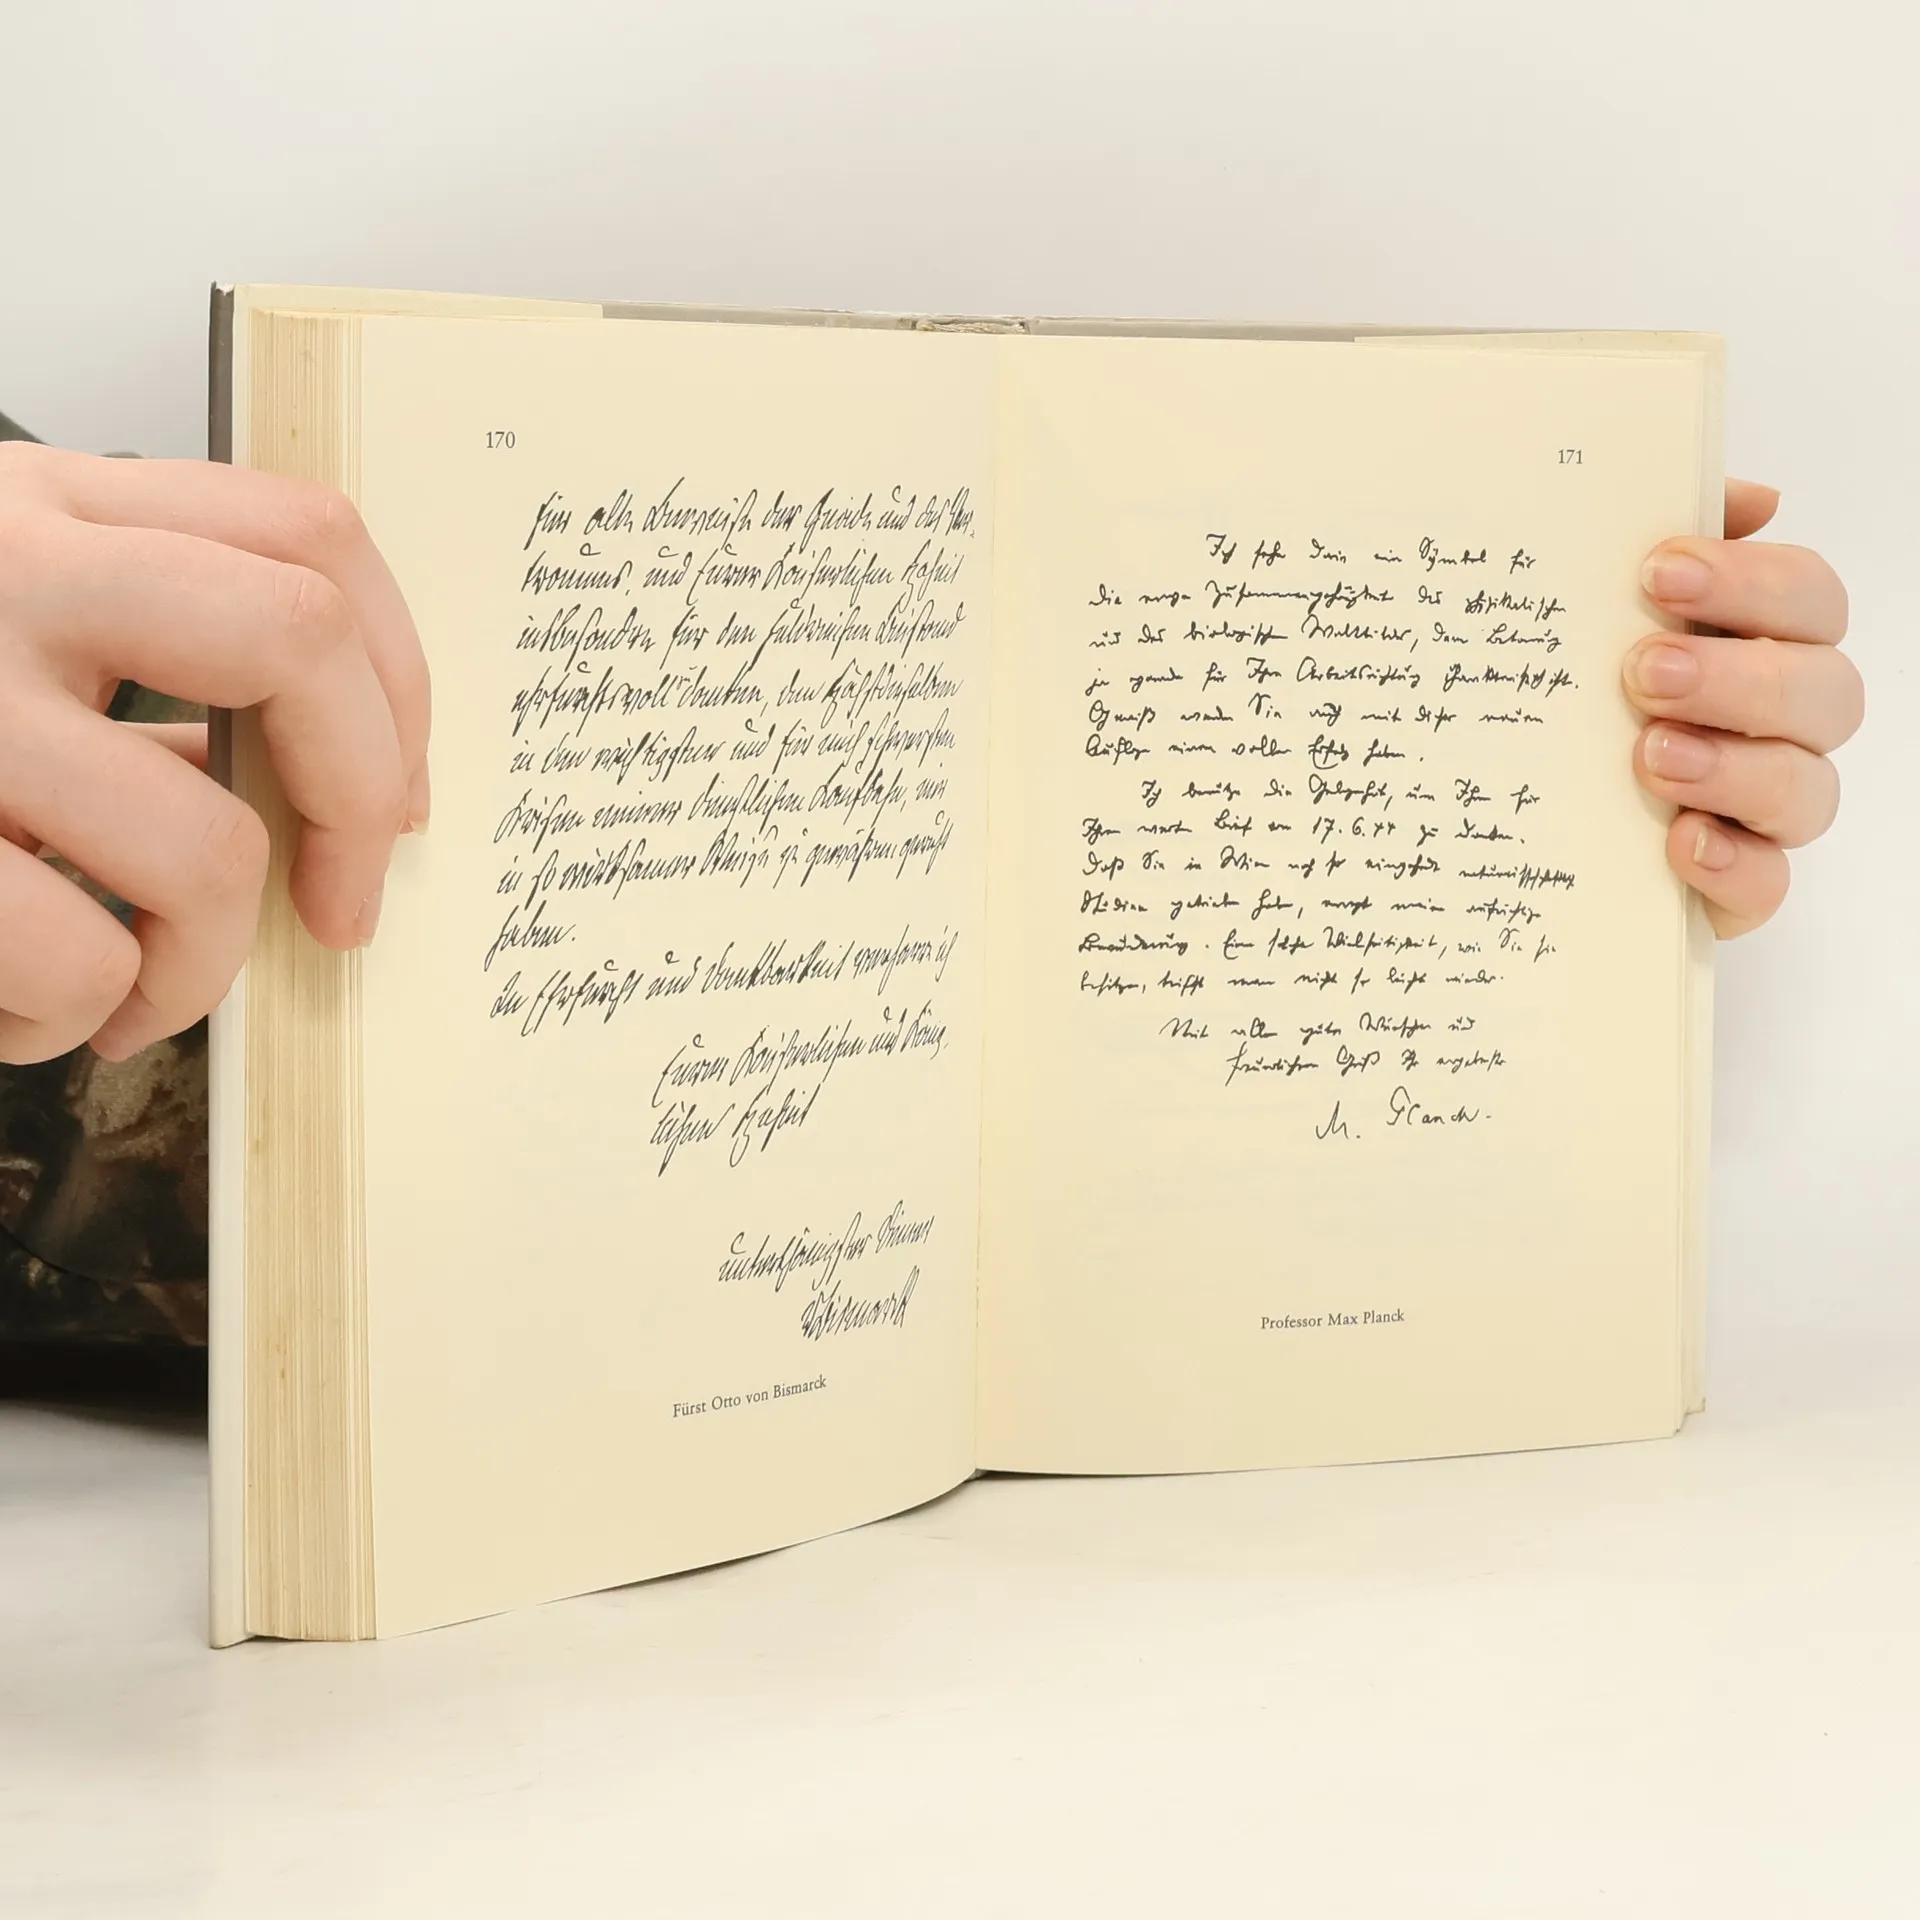 170
für alle Beweise der Gnade und des Ver-
trauens, und Eurer Kaiserlichen Hoheit
insbesondre für den huldreichen Beistand
ehrfurchtsvoll danken, den Höchstdieselben
in den wichtigsten und für mich schwersten
Krisen meiner dienstlichen Laufbahn, mir
in so wirksamer Weise zu gewähren geruht
haben.
In Ehrfurcht und Dankbarkeit verharre ich
Eurer Kaiserlichen und König-
lichen Hoheit
unterthänigster Diener
vBismarck
Fürst Otto von Bismarck
171
Ich sehe darin ein Symbol für
die enge Zusammengehörigkeit des physikalischen
und des biologischen Weltbildes, deren Betonung
ja gerade für Ihre Arbeitsrichtung charakteristisch ist.
Gewiß werden Sie auch mit dieser neuen
Auflage einen vollen Erfolg haben.
Ich benütze die Gelegenheit, um Ihnen für
Ihren werten Brief vom 17.6.44 zu danken.
Daß Sie in Wien noch so eingehend naturwissenschaftliche
Studien getrieben haben, erregt meine aufrichtige
Bewunderung. Eine solche Vielseitigkeit, wie Sie sie
besitzen, trifft man nicht so leicht wieder.
Mit allen guten Wünschen und
freundlichem Gruß Ihr ergebenster
M. Planck.
Professor Max Planck